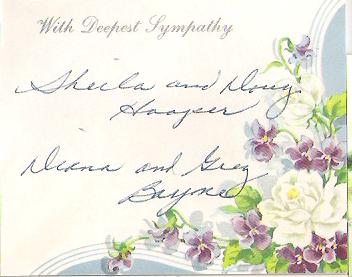 With Deepest Sympathy
Sheila and Doug
Hooper
Diana and Greg
Bayne